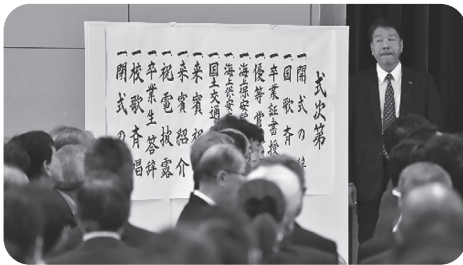 式次第
一 開式の
一 国歌斉
一 卒業証書授
一 優等賞
一 海上保安
一 海上保安
一 国土交通
一 来賓祝
一 来賓紹介
一 祝電披露
一 卒業生答辞
一 校歌斉唱
一 閉式の